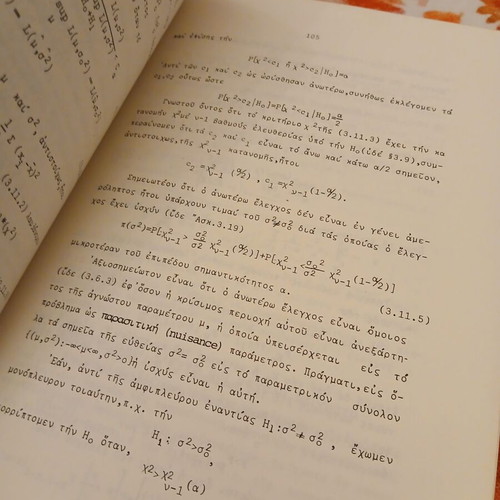 105
καί ἐπίσης τήν
P[χ²<c₁ ἤ χ²>c₂|H₀]=α
Ἀντί τῶν c₁ καί c₂ ὡς ὡρίσθησαν ἀνωτέρω, συνήθως ἐκλέγομεν τά
c₁, c₂ οὕτως ὥστε
P[χ²>c₂|H₀]=P[χ²<c₁|H₀]=α/2
Γνωστοῦ ὄντος ὅτι τό κριτήριο χ² τῆς (3.11.3) ἔχει τήν κα
τανομήν χ² μέ ν-1 βαθμούς ἐλευθερίας ὑπό τήν H₀(ἰδέ §3.9), συμ-
περαίνομεν ὅτι τά c₂ καί c₁ εἶναι τό ἄνω καί κάτω α/2 σημεῖον,
ἀντιστοίχως, τῆς χ²ν-1 κατανομῆς, ἤτοι
c₂ =χ²ν-1 (α/2) , c₁ =χ²ν-1(1-α/2).
Σημειωτέον ὅτι ὁ ἀνωτέρω ἔλεγχος δέν εἶναι ἐν γένει ἀμε-
ρόληπτος ἤτοι ὑπάρχουν τιμαί τοῦ σ²≠σ₀² διά τάς ὁποίας ὁ ἔλεγ-
χος ἔχει ἰσχύν (ἰδέ Ἀσκ.3.19)
π(σ²)=P[χ²ν-1 > σ₀²/σ² χ²ν-1(α/2)]+P[χ²ν-1<σ₀²/σ² χ²ν-1(1-α/2)]
μικροτέραν τοῦ ἐπιπέδου σημαντικότητος α. (3.11.5)
Ἀξιοσημείωτον εἶναι ὅτι ὁ ἀνωτέρω ἔλεγχος εἶναι ὅμοιος
(ἰδέ (3.6.3) ἐφ' ὅσον ἡ κρίσιμος περιοχή αὐτοῦ εἶναι ἀνεξάρτη-
τος τῆς ἀγνώστου παραμέτρου μ, ἡ ὁποία ὑπεισέρχεται εἰς τό
πρόβλημα ὡς παρασιτική (nuisance) παράμετρος. Πράγματι, εἰς ὅ-
λα τά σημεῖα τῆς εὐθείας σ²= σ₀² εἰς τό παραμετρικόν σύνολον
{(μ,σ²):-∞<μ<∞,σ²>0} ἡ ἰσχύς εἶναι ἡ αὐτή.
Ἐάν, ἀντί τῆς ἀμφιπλεύρου ἐναντίας H₁:σ²≠ σ₀² , ἔχωμεν
μονόπλευρον τοιαύτην, π.χ. τήν
H₁: σ²>σ₀² ,
ορρίπτομεν τήν H₀ ὅταν,
χ²>χ²ν-1(α)